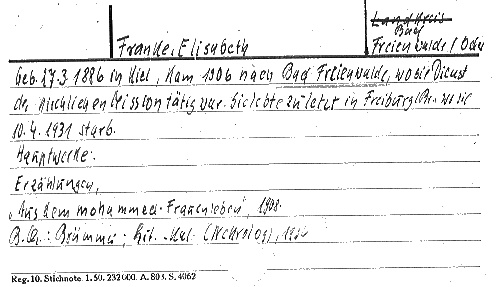 Landkreis
Bad
Franke, Elisabeth Freienwalde/Oder
geb. 27.3. 1886 in Kiel, kam 1906 nach Bad Freienwalde, wo sie Dienst
der kirchlichen Mission tätig war. Sie lebte zuletzt in Freiburg/Br. wo sie
10.4. 1931 starb.
Hauptwerke:
Erzählungen,
"Aus dem mohammed. Frauenleben", 1908.
B.Qu.: Brümmer; Lit.-Kal. (Nekrolog),
Reg. 10. Stichnote. 1. 50. 232000. A. 803. S. 4062